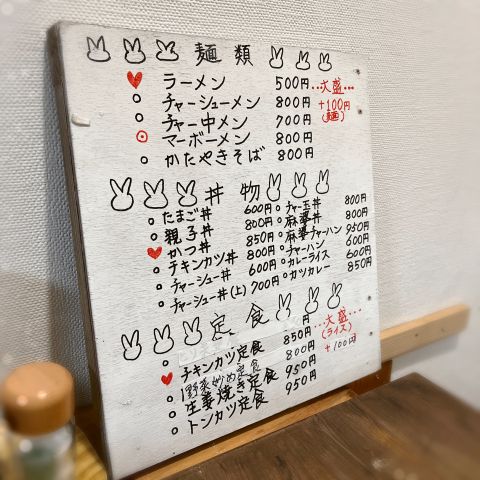 麺類
ラーメン 500円 …大盛…
チャーシューメン 800円 +100円
チャー中メン 700円 (麺)
マーボーメン 800円
かたやきそば 800円
丼物
たまご丼 600円 チャー玉丼 800円
親子丼 800円 麻婆丼 800円
かつ丼 850円 麻婆チャーハン 950円
チキンカツ丼 800円 チャーハン 600円
チャーシュー丼 600円 カレーライス 600円
チャーシュー丼(上) 700円 カツカレー 850円
定食
円 …大盛…
チキンカツ定食 850円 (ライス)
野菜炒め定食 800円 +100円
生姜焼き定食 950円
トンカツ定食 950円